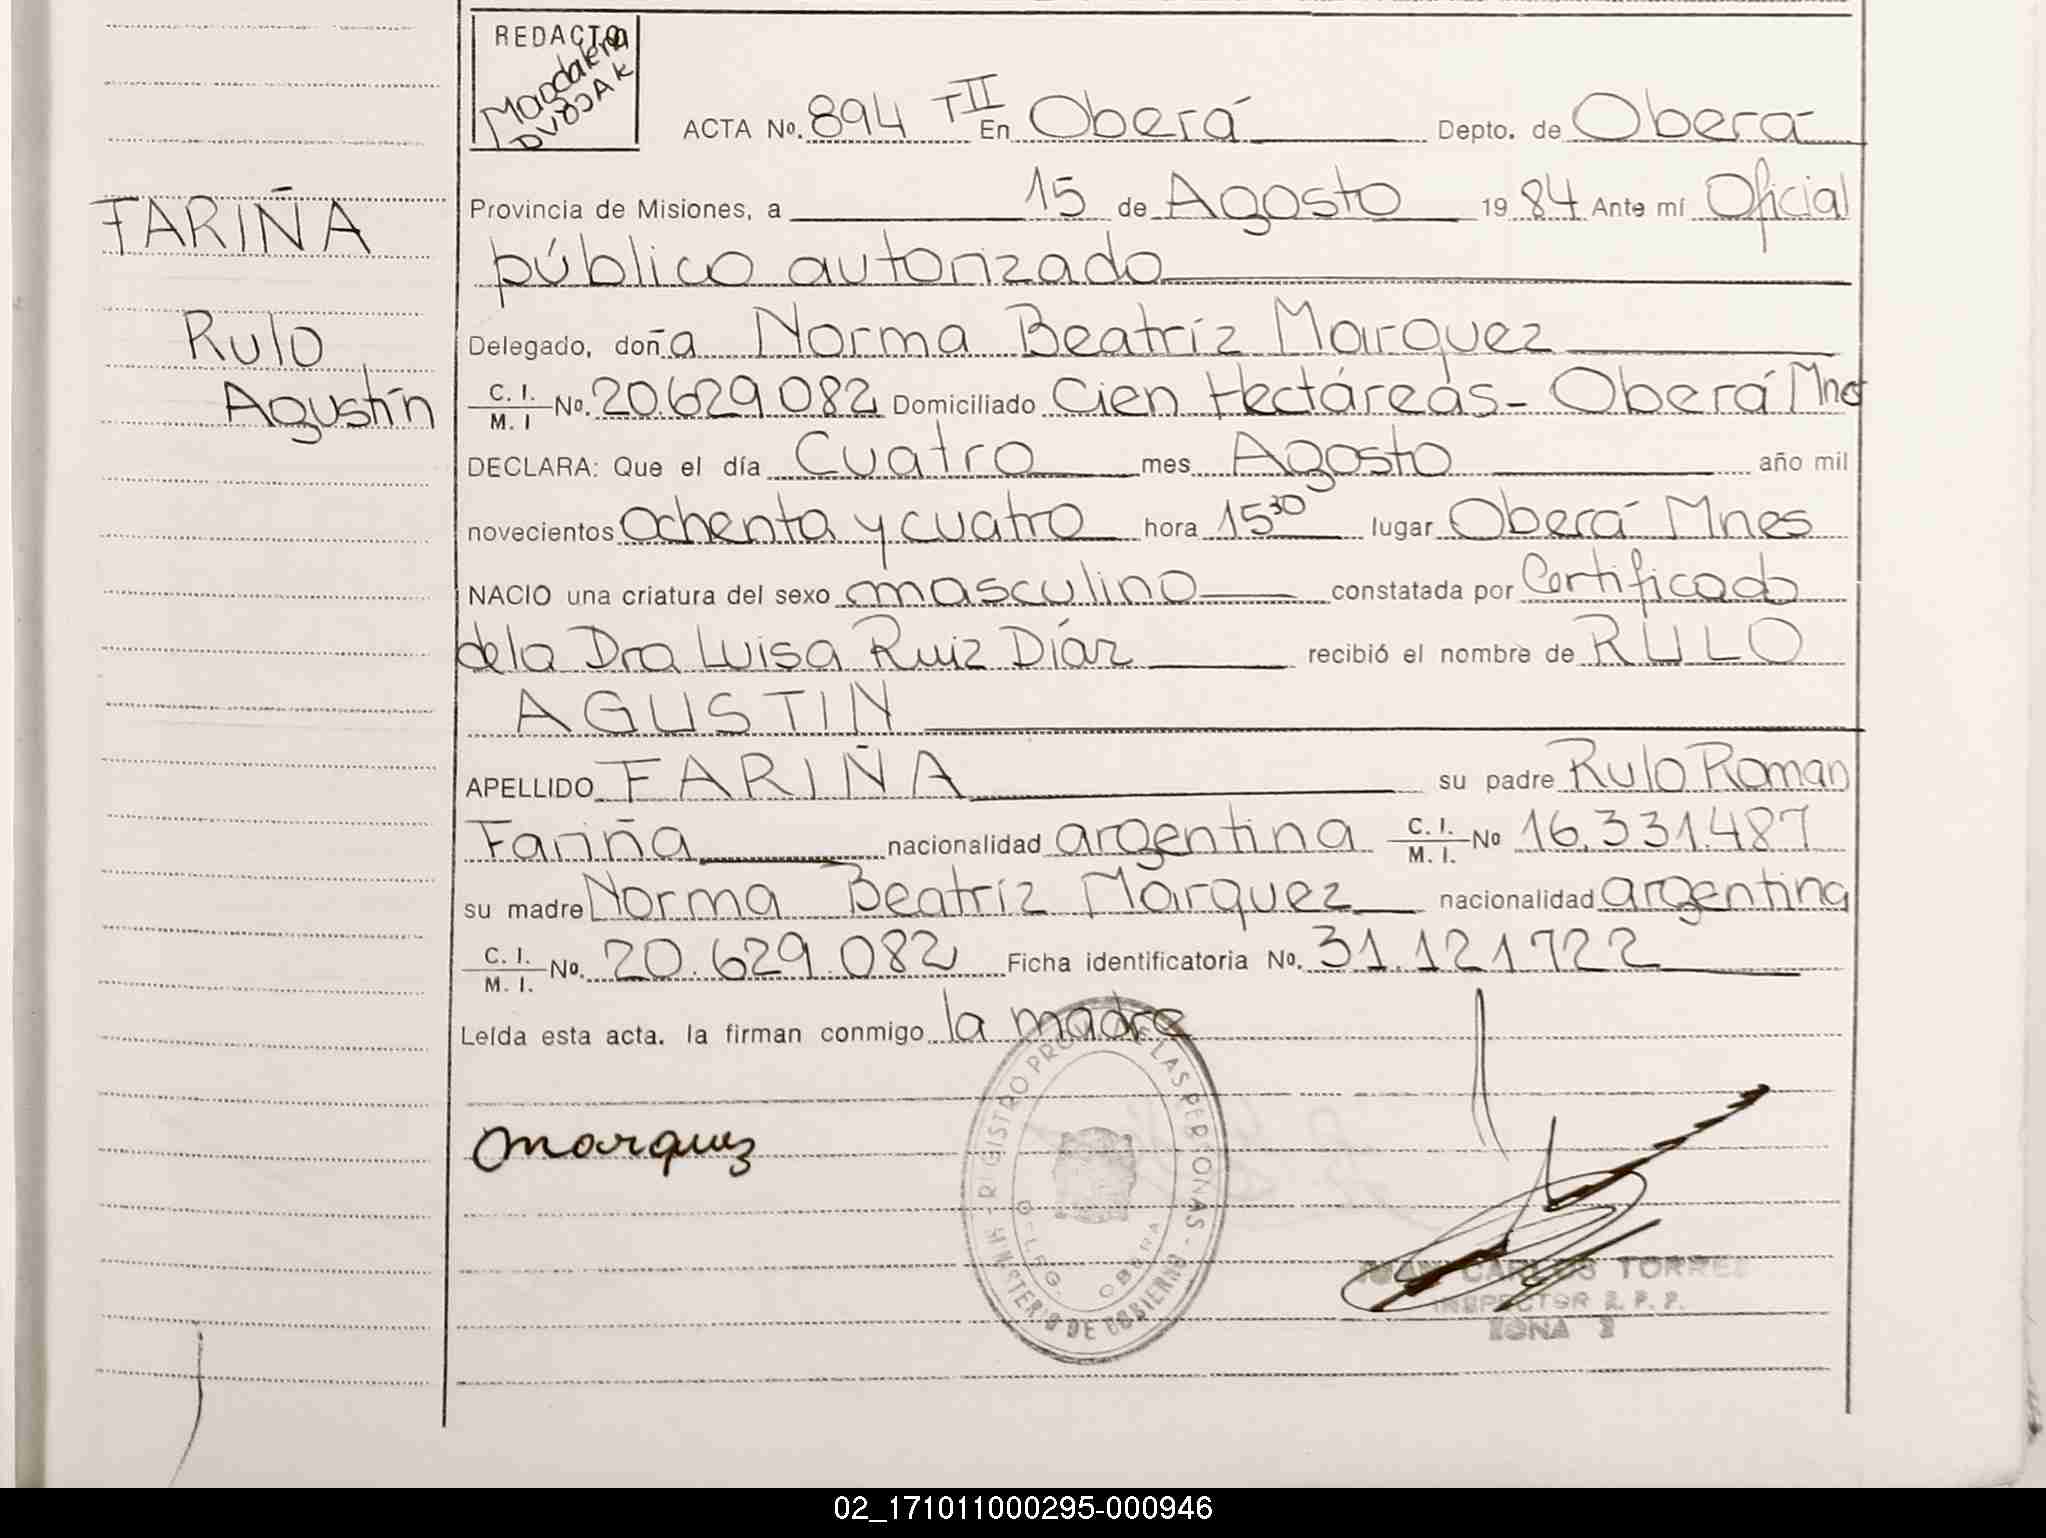 REDACTO
Magdalena
DVOJAK
ACTA No. 894 TII En Oberá Depto. de Oberá
Provincia de Misiones, a 15 de Agosto 1984 Ante mí Oficial
público autorizado
Delegado, doña Norma Beatríz Marquez
C. I. M. I No. 20.629.082 Domiciliado Cien Hectáreas - Oberá Mnes
DECLARA: Que el día Cuatro mes Agosto año mil
novecientos ochenta y cuatro hora 15 30 lugar Oberá Mnes
NACIO una criatura del sexo masculino constatada por Certificado
de la Dra Luisa Ruiz Díaz recibió el nombre de RULO
AGUSTIN
APELLIDO FARIÑA su padre Rulo Roman
Fariña nacionalidad argentina C. I. M. I. No 16.331.487
su madre Norma Beatríz Márquez nacionalidad argentina
C. I. M. I. No. 20.629.082 Ficha identificatoria No. 31.121.722
Leída esta acta. la firman conmigo la madre
FARIÑA
Rulo
Agustín
Marquez
REGISTRO PROV. DE LAS PERSONAS - MINISTERIO DE GOBIERNO
DELEG. OBERA
JUAN CARLOS TORRES
INSPECTOR R. P. P.
ZONA
02_171011000295-000946